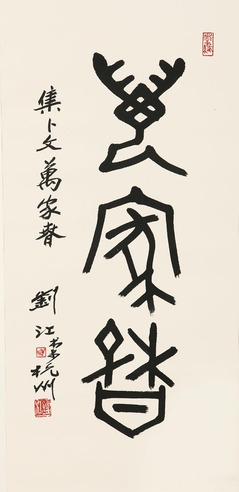 萬家春
集卜文萬家春
劉江書於杭州